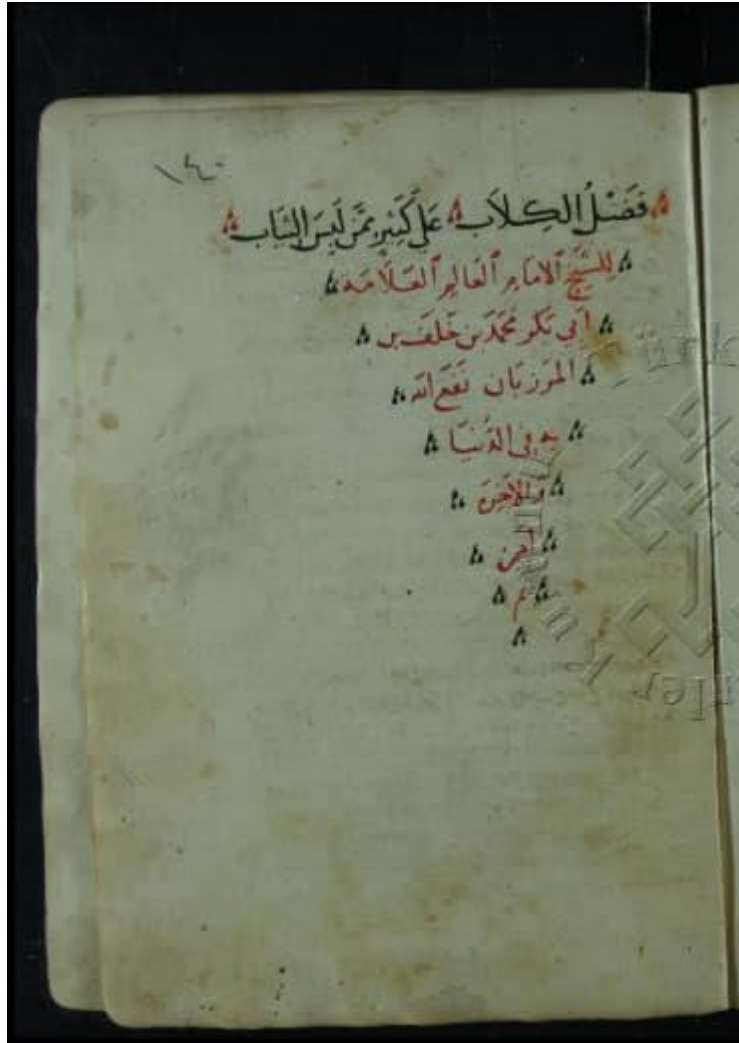 ١٤٠
فَضْلُ الكِلَاب عَلَى كَثِيرٍ مِمَّن لَبِسَ الثِّيَاب
للشيخ الامام العالم العلامه
أبي بكر محمد بن خلف بن
المرزبان نفع الله
به في الدنيا
والآخرة
آمين